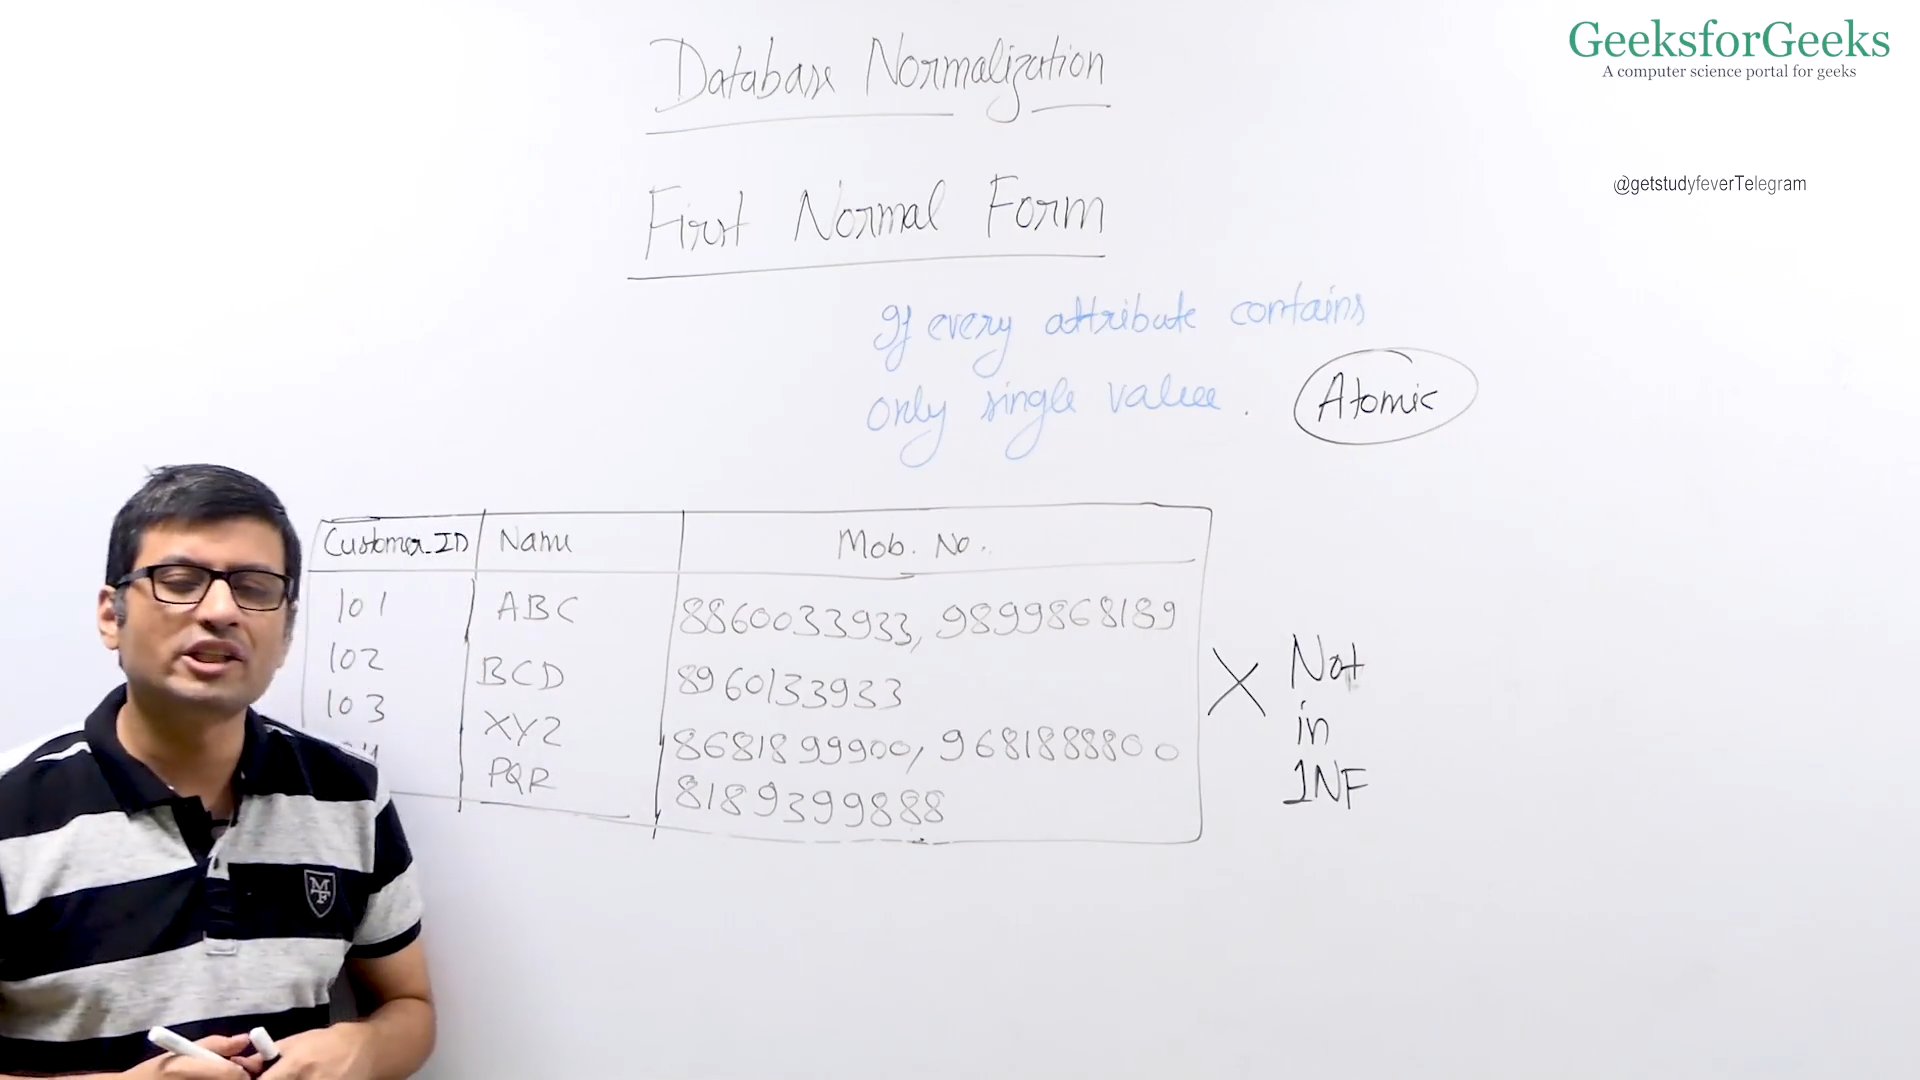 GeeksforGeeks
A computer science portal for geeks
@getstudyfeverTelegram
Database Normalization
First Normal Form
If every attribute contains
only single value.
Atomic
Customer_ID Name Mob. No.
101 ABC 8860033933, 9899868189
102 BCD 8960133933
103 XYZ 8681899900, 9681888800
PQR 8189399888
X Not
in
1NF
MF